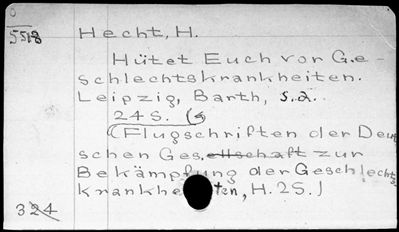 5518
Hecht, H.
Hütet Euch vor Ge-
schlechtskrankheiten.
Leipzig, Barth, s.a.
24 S.
(Flugschriften der Deut
schen Ges. ellschaft zur
Bekämpfung der Geschlechts
krankheiten, H. 25.)
324